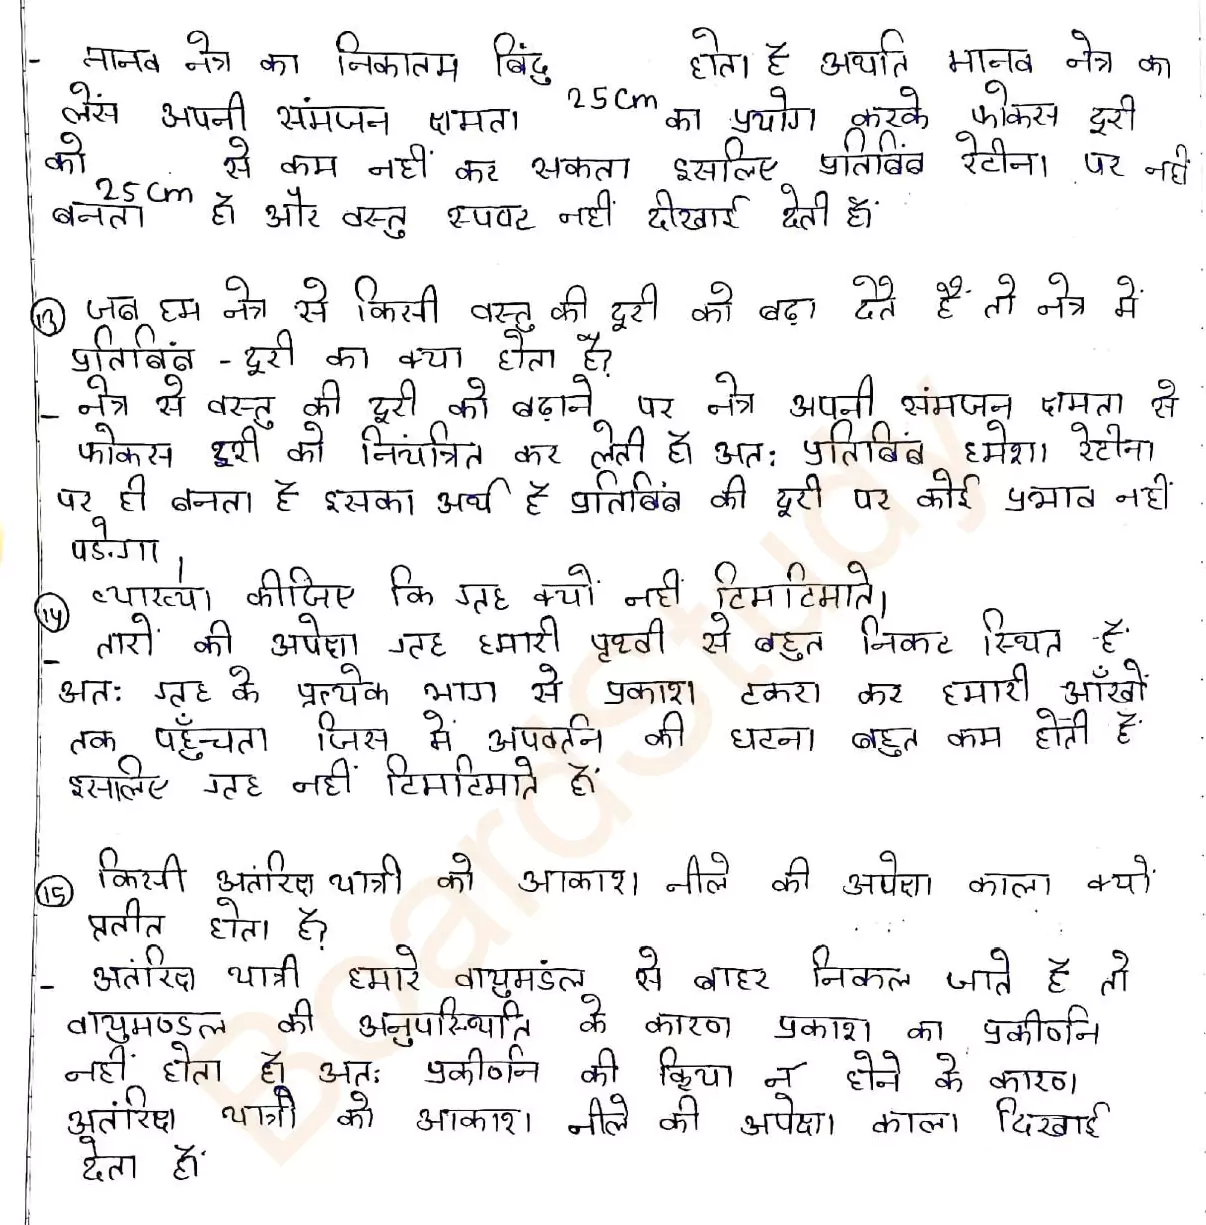 - मानव नेत्र का निकातम बिंदु 25cm होता है अर्थात मानव नेत्र का
लेंस अपनी संमजन क्षमता का प्रयोग करके फोकस दूरी
को 25cm से कम नहीं कर सकता इसलिए प्रतिबिंब रेटीना पर नहीं
बनता है और वस्तु स्पष्ट नहीं दीखाई देती है
13 जब हम नेत्र से किसी वस्तु की दूरी को बढ़ा देते हैं तो नेत्र में
प्रतिबिंब - दूरी का क्या होता है?
- नेत्र से वस्तु की दूरी को बढ़ाने पर नेत्र अपनी संमजन क्षमता से
फोकस दूरी को नियंत्रित कर लेती है अतः प्रतिबिंब हमेशा रेटीना
पर ही बनता है इसका अर्थ है प्रतिबिंब की दूरी पर कोई प्रभाव नहीं
पडेगा।
14 व्याख्या कीजिए कि ग्रह क्यों नहीं टिमटिमाते।
- तारों की अपेक्षा ग्रह हमारी पृथ्वी से बहुत निकट स्थित हैं
अतः ग्रह के प्रत्येक भाग से प्रकाश टकरा कर हमारी आँखों
तक पहुँचता जिस में अपवर्तन की घटना बहुत कम होती है
इसलिए ग्रह नहीं टिमटिमाते हैं
15 किसी अतंरिक्ष यात्री को आकाश नीले की अपेक्षा काला क्यों
प्रतीत होता है?
- अतंरिक्ष यात्री हमारे वायुमंडल से बाहर निकल जाते है तो
वायुमण्डल की अनुपस्थिति के कारण प्रकाश का प्रकीर्णन
नहीं होता है अतः प्रकीर्णन की क्रिया न होने के कारण
अतंरिक्ष यात्री को आकाश नीले की अपेक्षा काला दिखाई
देता है
BoardStudy